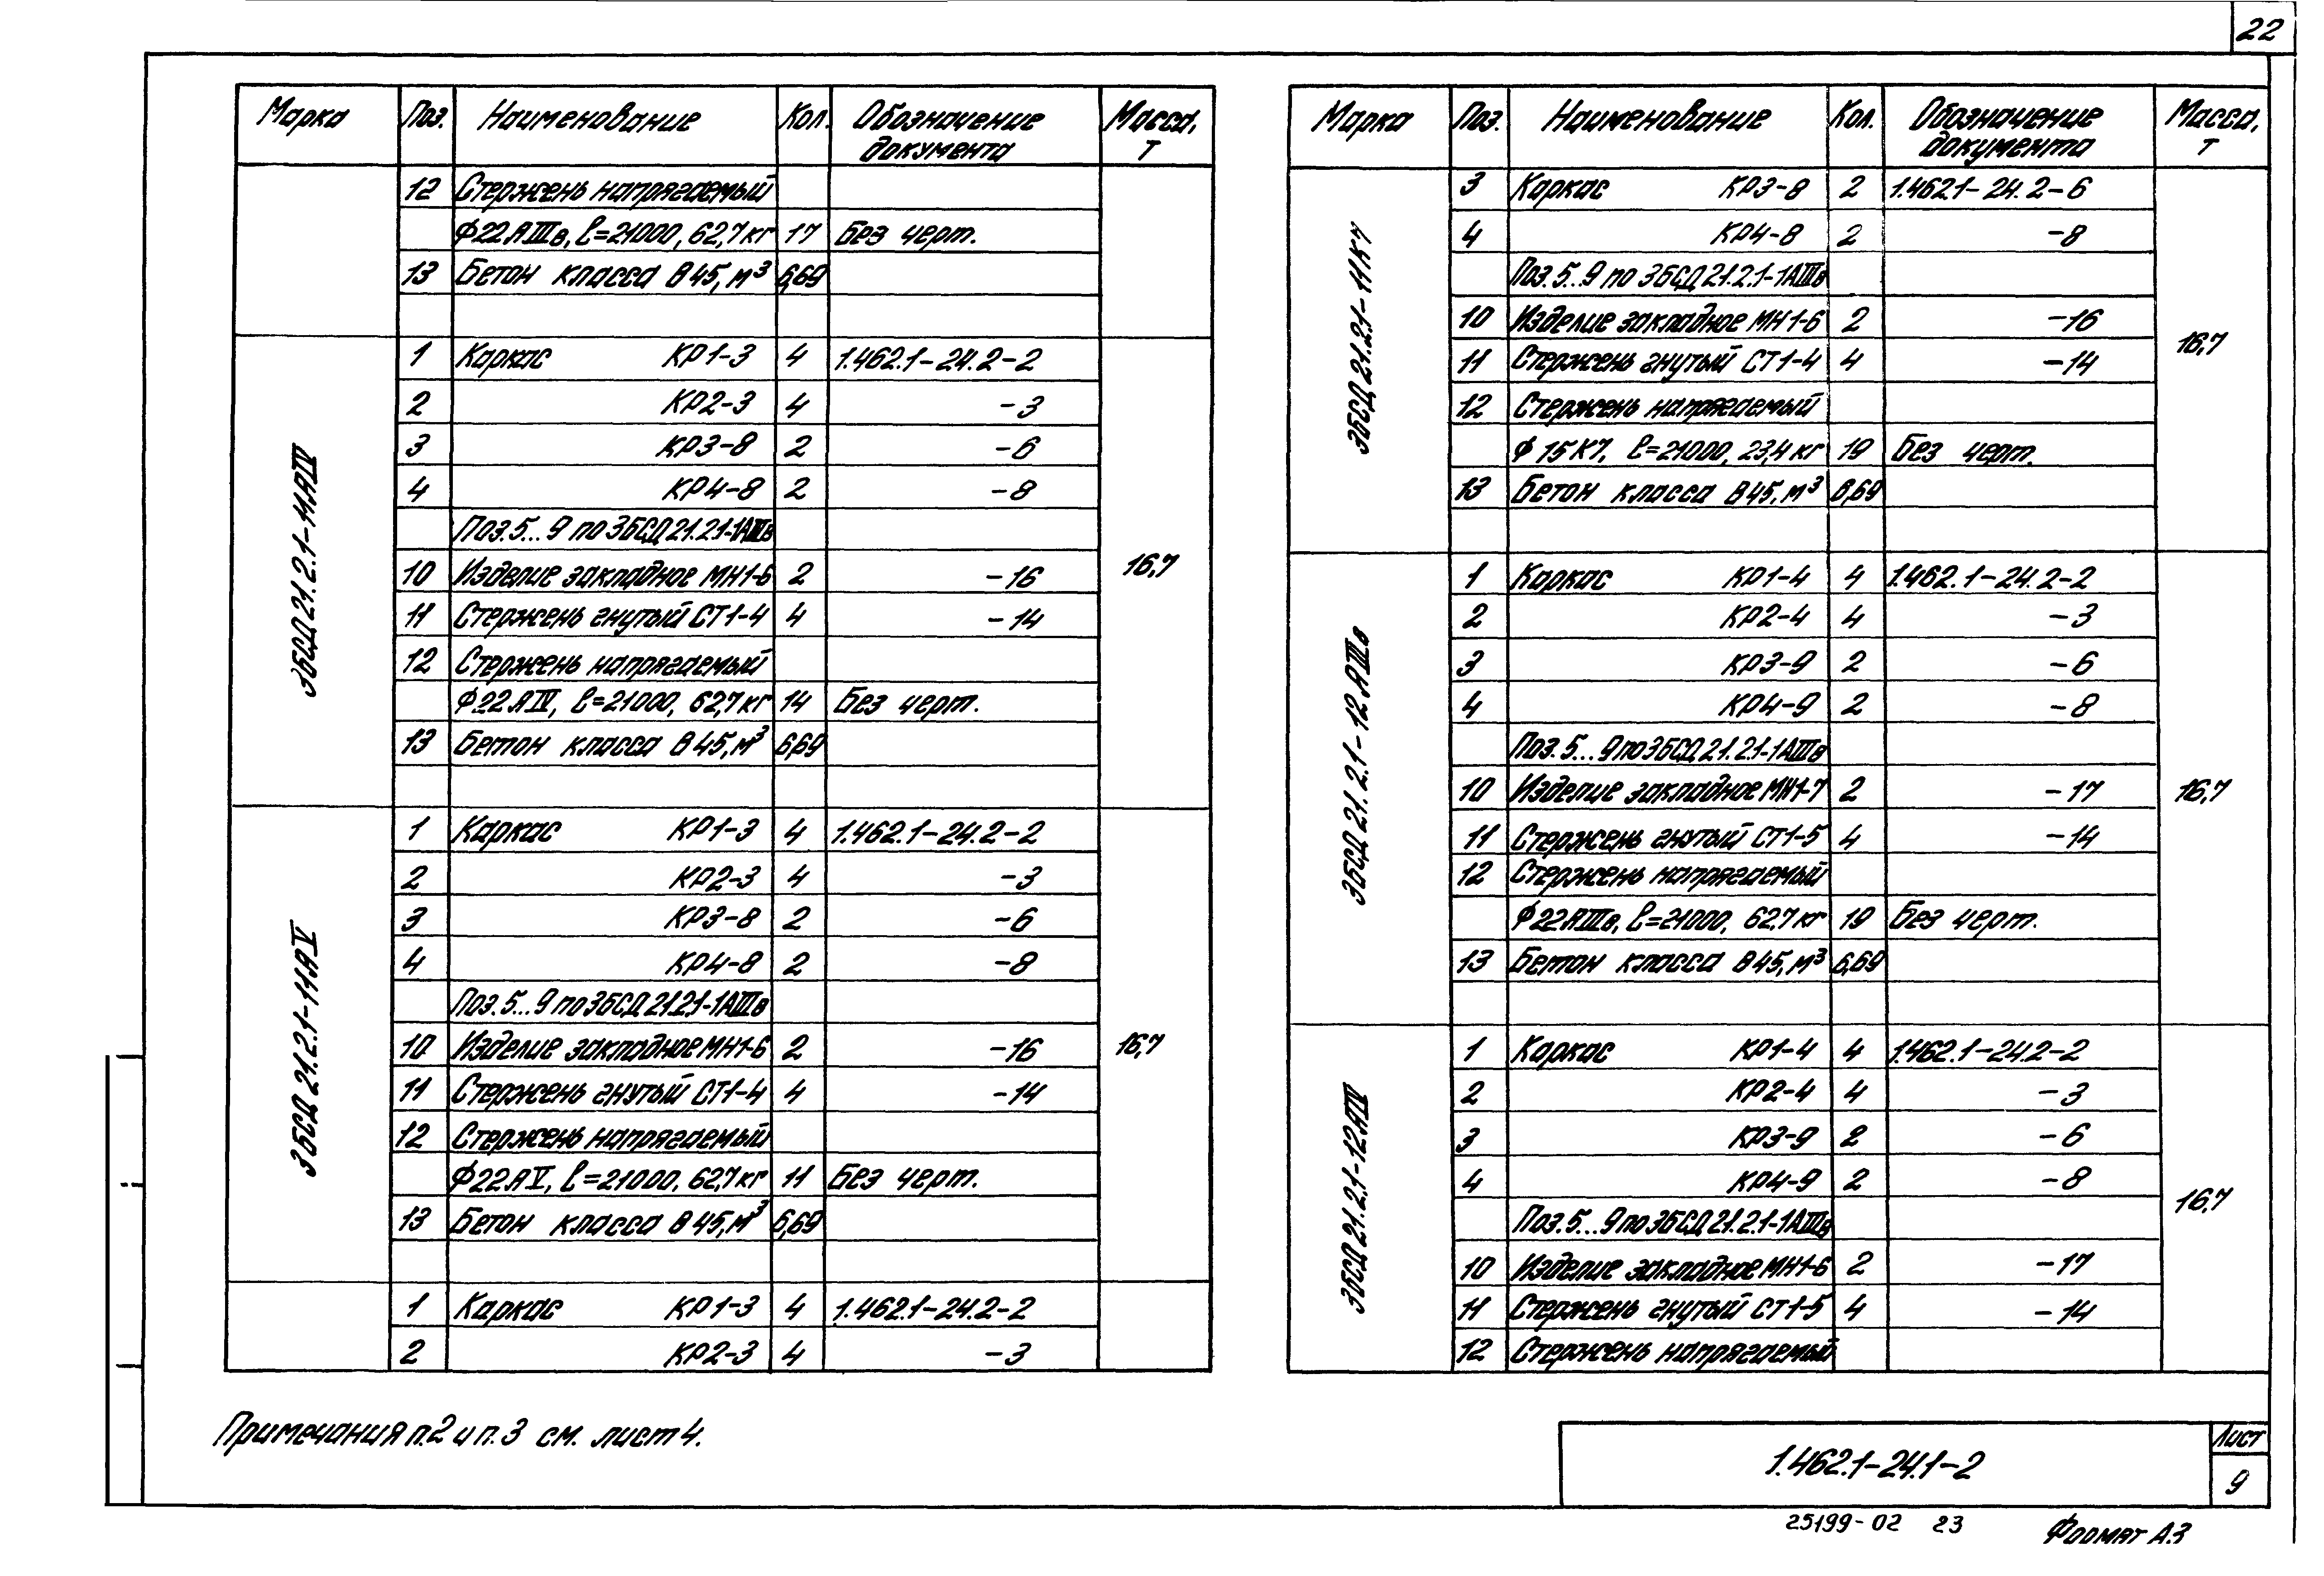 22
Марка Поз. Наименование Кол. Обозначение документа Масса, т
12 Стержень напрягаемый
Ф22АIIIв, ℓ=21000, 62,7кг 17 Без черт.
13 Бетон класса В45, м³ 6,69
3БСД21.2.1-11АIV
1 Каркас КР1-3 4 1.462.1-24.2-2
2 КР2-3 4 -3
3 КР3-8 2 -6
4 КР4-8 2 -8
Поз.5...9 по 3БСД21.2.1-1АIIIв
10 Изделие закладное МН1-6 2 -16 16,7
11 Стержень гнутый СТ1-4 4 -14
12 Стержень напрягаемый
Ф22АIV, ℓ=21000, 62,7кг 14 Без черт.
13 Бетон класса В45, м³ 6,69
3БСД21.2.1-11АV
1 Каркас КР1-3 4 1.462.1-24.2-2
2 КР2-3 4 -3
3 КР3-8 2 -6
4 КР4-8 2 -8
Поз.5...9 по 3БСД21.2.1-1АIIIв
10 Изделие закладное МН1-6 2 -16 16,7
11 Стержень гнутый СТ1-4 4 -14
12 Стержень напрягаемый
Ф22АV, ℓ=21000, 62,7кг 11 Без черт.
13 Бетон класса В45, м³ 6,69
1 Каркас КР1-3 4 1.462.1-24.2-2
2 КР2-3 4 -3
Марка Поз. Наименование Кол. Обозначение документа Масса, т
3БСД21.2.1-11К7
3 Каркас КР3-8 2 1.462.1-24.2-6
4 КР4-8 2 -8
Поз.5...9 по 3БСД21.2.1-1АIIIв
10 Изделие закладное МН1-6 2 -16 16,7
11 Стержень гнутый СТ1-4 4 -14
12 Стержень напрягаемый
Ф15К7, ℓ=21000, 23,4кг 19 Без черт.
13 Бетон класса В45, м³ 6,69
3БСД21.2.1-12АIIIв
1 Каркас КР1-4 4 1.462.1-24.2-2
2 КР2-4 4 -3
3 КР3-9 2 -6
4 КР4-9 2 -8
Поз.5...9 по 3БСД21.2.1-1АIIIв
10 Изделие закладное МН1-7 2 -17 16,7
11 Стержень гнутый СТ1-5 4 -14
12 Стержень напрягаемый
Ф22АIIIв, ℓ=21000, 62,7кг 19 Без черт.
13 Бетон класса В45, м³ 6,69
3БСД21.2.1-12АIV
1 Каркас КР1-4 4 1.462.1-24.2-2
2 КР2-4 4 -3
3 КР3-9 2 -6
4 КР4-9 2 -8
Поз.5...9 по 3БСД21.2.1-1АIIIв 16,7
10 Изделие закладное МН1-6 2 -17
11 Стержень гнутый СТ1-5 4 -14
12 Стержень напрягаемый
Примечания п.2 и п.3 см. лист 4.
1.462.1-24.1-2
Лист
9
25199-02 23
Формат А3